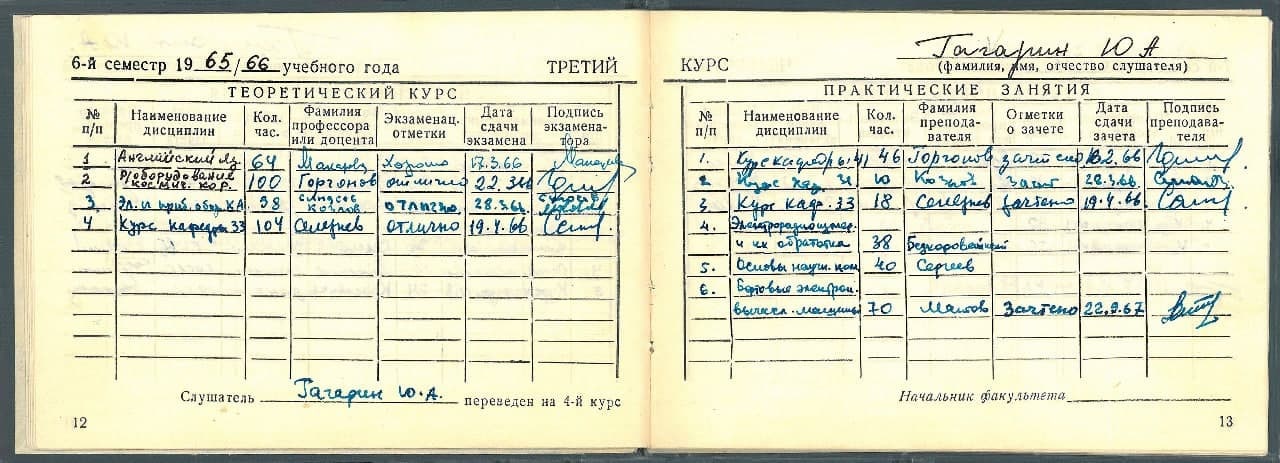 6-й семестр 1965/66 учебного года ТРЕТИЙ
ТЕОРЕТИЧЕСКИЙ КУРС
№ п/п Наименование дисциплин Кол. час. Фамилия профессора или доцента Экзаменац. отметки Дата сдачи экзамена Подпись экзамена-тора
1 Английский яз. 64 хорошо 17.3.66
2 Р/оборудование космич. кор. 100 Горгонов отлично 22.3.66
3 Эл. и приб. обор. КА 98 Козлов отлично 28.3.66
4 Курс кафедры 33 104 Селезнев отлично 19.4.66
Слушатель Гагарин Ю.А. переведен на 4-й курс
12
Гагарин Ю А
КУРС (фамилия, имя, отчество слушателя)
ПРАКТИЧЕСКИЕ ЗАНЯТИЯ
№ п/п Наименование дисциплин Кол. час. Фамилия препода-вателя Отметки о зачете Дата сдачи зачета Подпись преподава-теля
1. Курс кафедры 41 46 Горгонов зачтено 2.66
2 Курс каф. 31 10 Козлов зачт 28.3.66
3. Курс каф. 33 18 Селезнев зачтено 19.4.66
4. Электрорадиоизмер.
и их обработка 38 Безкоровайный
5. Основы научн. ком. 40 Сергеев
6. Бортовые электрон.
вычисл. машины 70 Зачтено 22.9.67
Начальник факультета
13